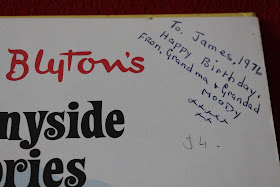 Blyton's
nyside
ories
To. James, 1976
Happy Birthday.
From. Grandma & Grandad
MOODY
xxxxx
xx
$4-